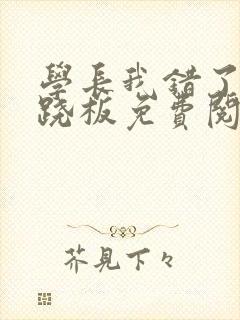 學長我錯了
跷板免費閱
芥見下々